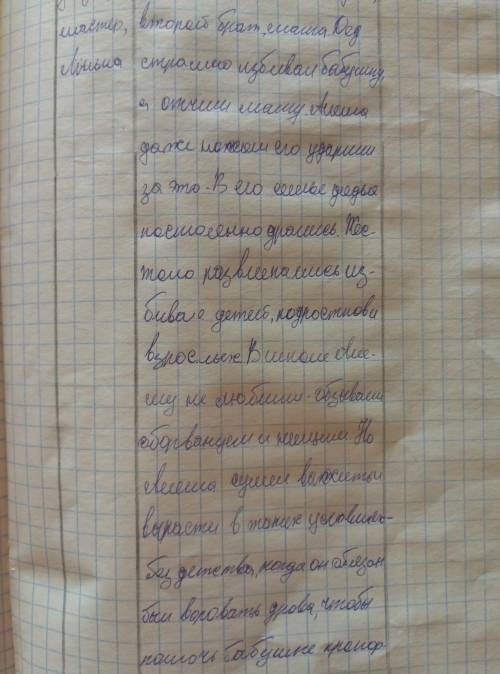 мастер, второй брат, мама. Дед
Лёнька страшно избивал бабушку,
а отчим маму. Алеша
даже ножом его ударил
за это. В его семье дядья
постоянно дрались. Жес-
токо развлекались из-
бивая детей, подростков и
взрослых. В школе Але-
шу не любили - обзывали
оборванцем и нищим. Но
Алеша сумел выжить и
вырасти в таких условиях -
без детства, когда он обязан
был воровать дрова, чтобы
помочь бабушке прокор-